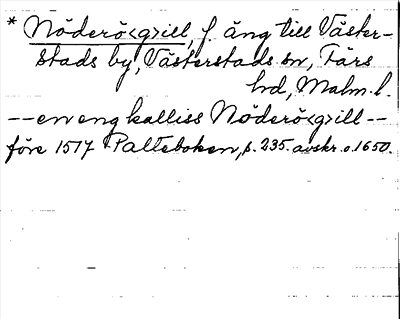 * Nöderö<g>ill, f. äng till Väster-
stads by, Västerstads sn, Färs
hd, Malm. l.
-- en eng kalliss Nöderö<g>ill --
före 1517 Palteboken, s. 235. avskr. o. 1650.